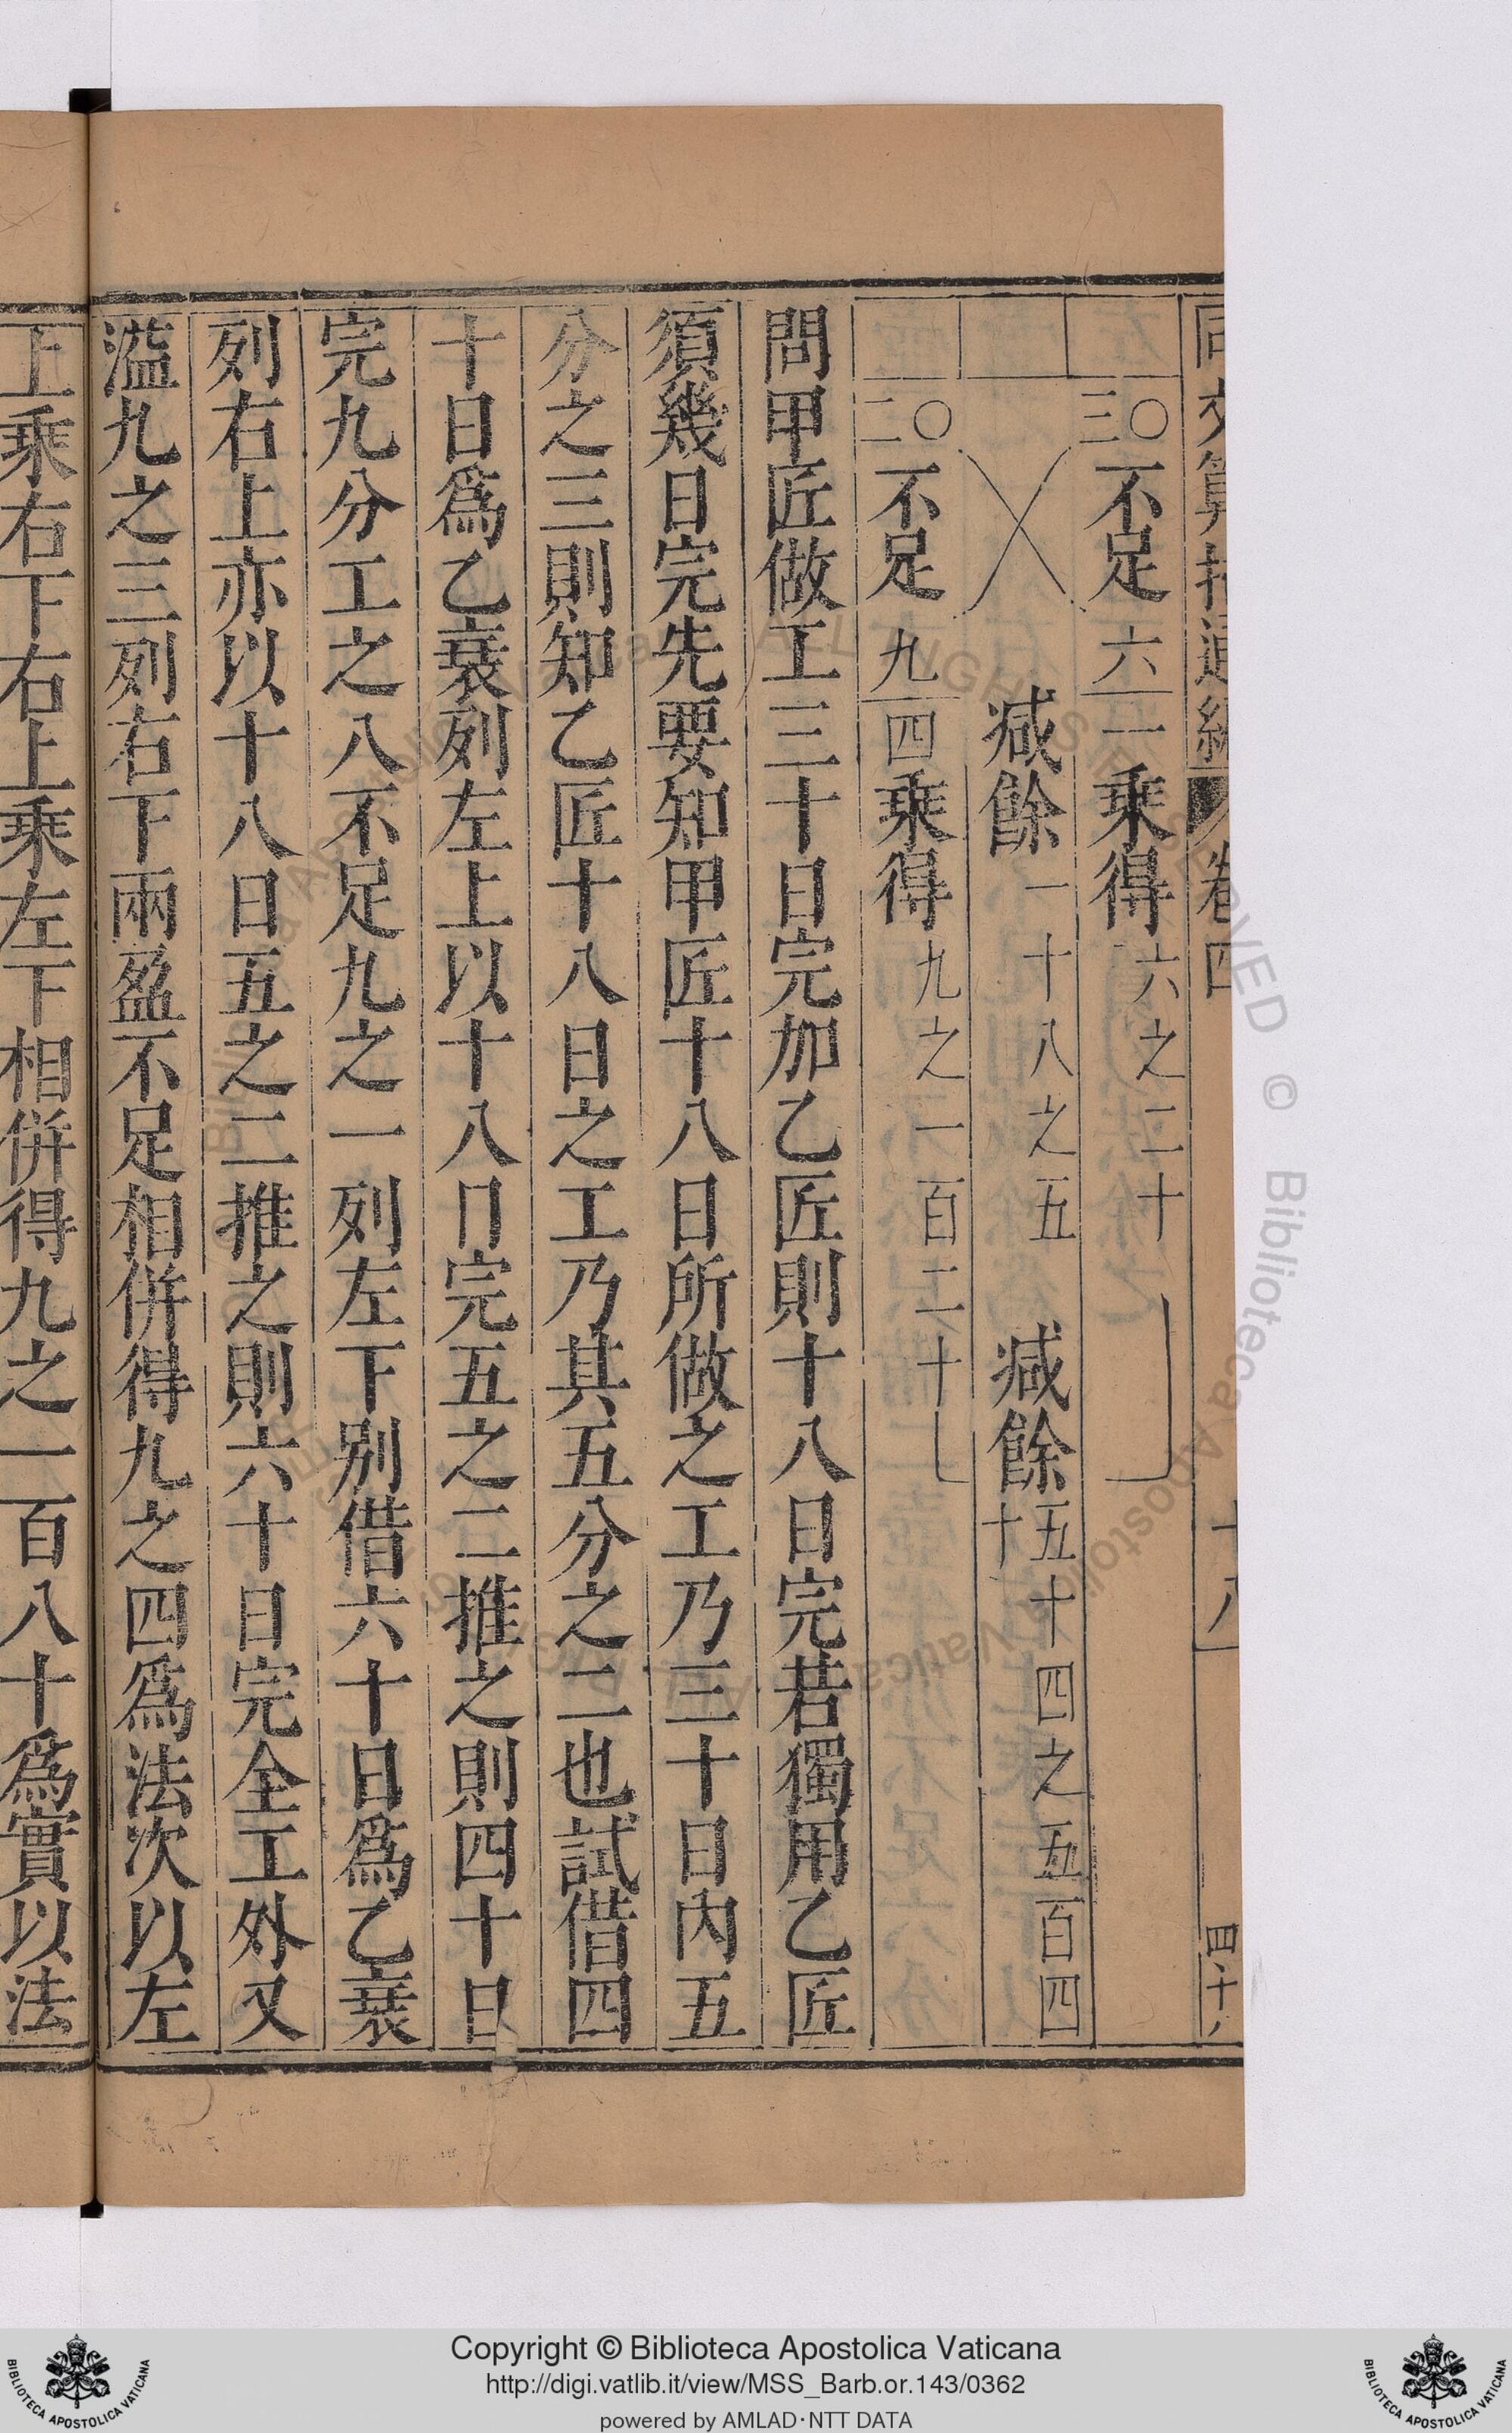 同文算指通編 卷四 十八 四十八
三〇不足六一乘得六之二十
減餘一十八之五 減餘五十四之五百四十
二〇不足九四乘得九之一百二十
問甲匠做工三十日完加乙匠則十八日完若獨用乙匠
須幾日完先要知甲匠十八日所做之工乃三十日內五
分之三則知乙匠十八日之工乃其五分之二也試借四
十日爲乙衰列左上以十八日完五之二推之則四十日
完九分工之八不足九之一列左下別借六十日爲乙衰
列右上亦以十八日五之二推之則六十日完全工外又
溢九之三列右下兩盈不足相併得九之四爲法次以左
上乘右下右上乘左下相併得九之一百八十爲實以法
Copyright © Biblioteca Apostolica Vaticana
http://digi.vatlib.it/view/MSS_Barb.or.143/0362
powered by AMLAD·NTT DATA
BIBLIOTECA APOSTOLICA VATICANA
BIBLIOTECA APOSTOLICA VATICANA